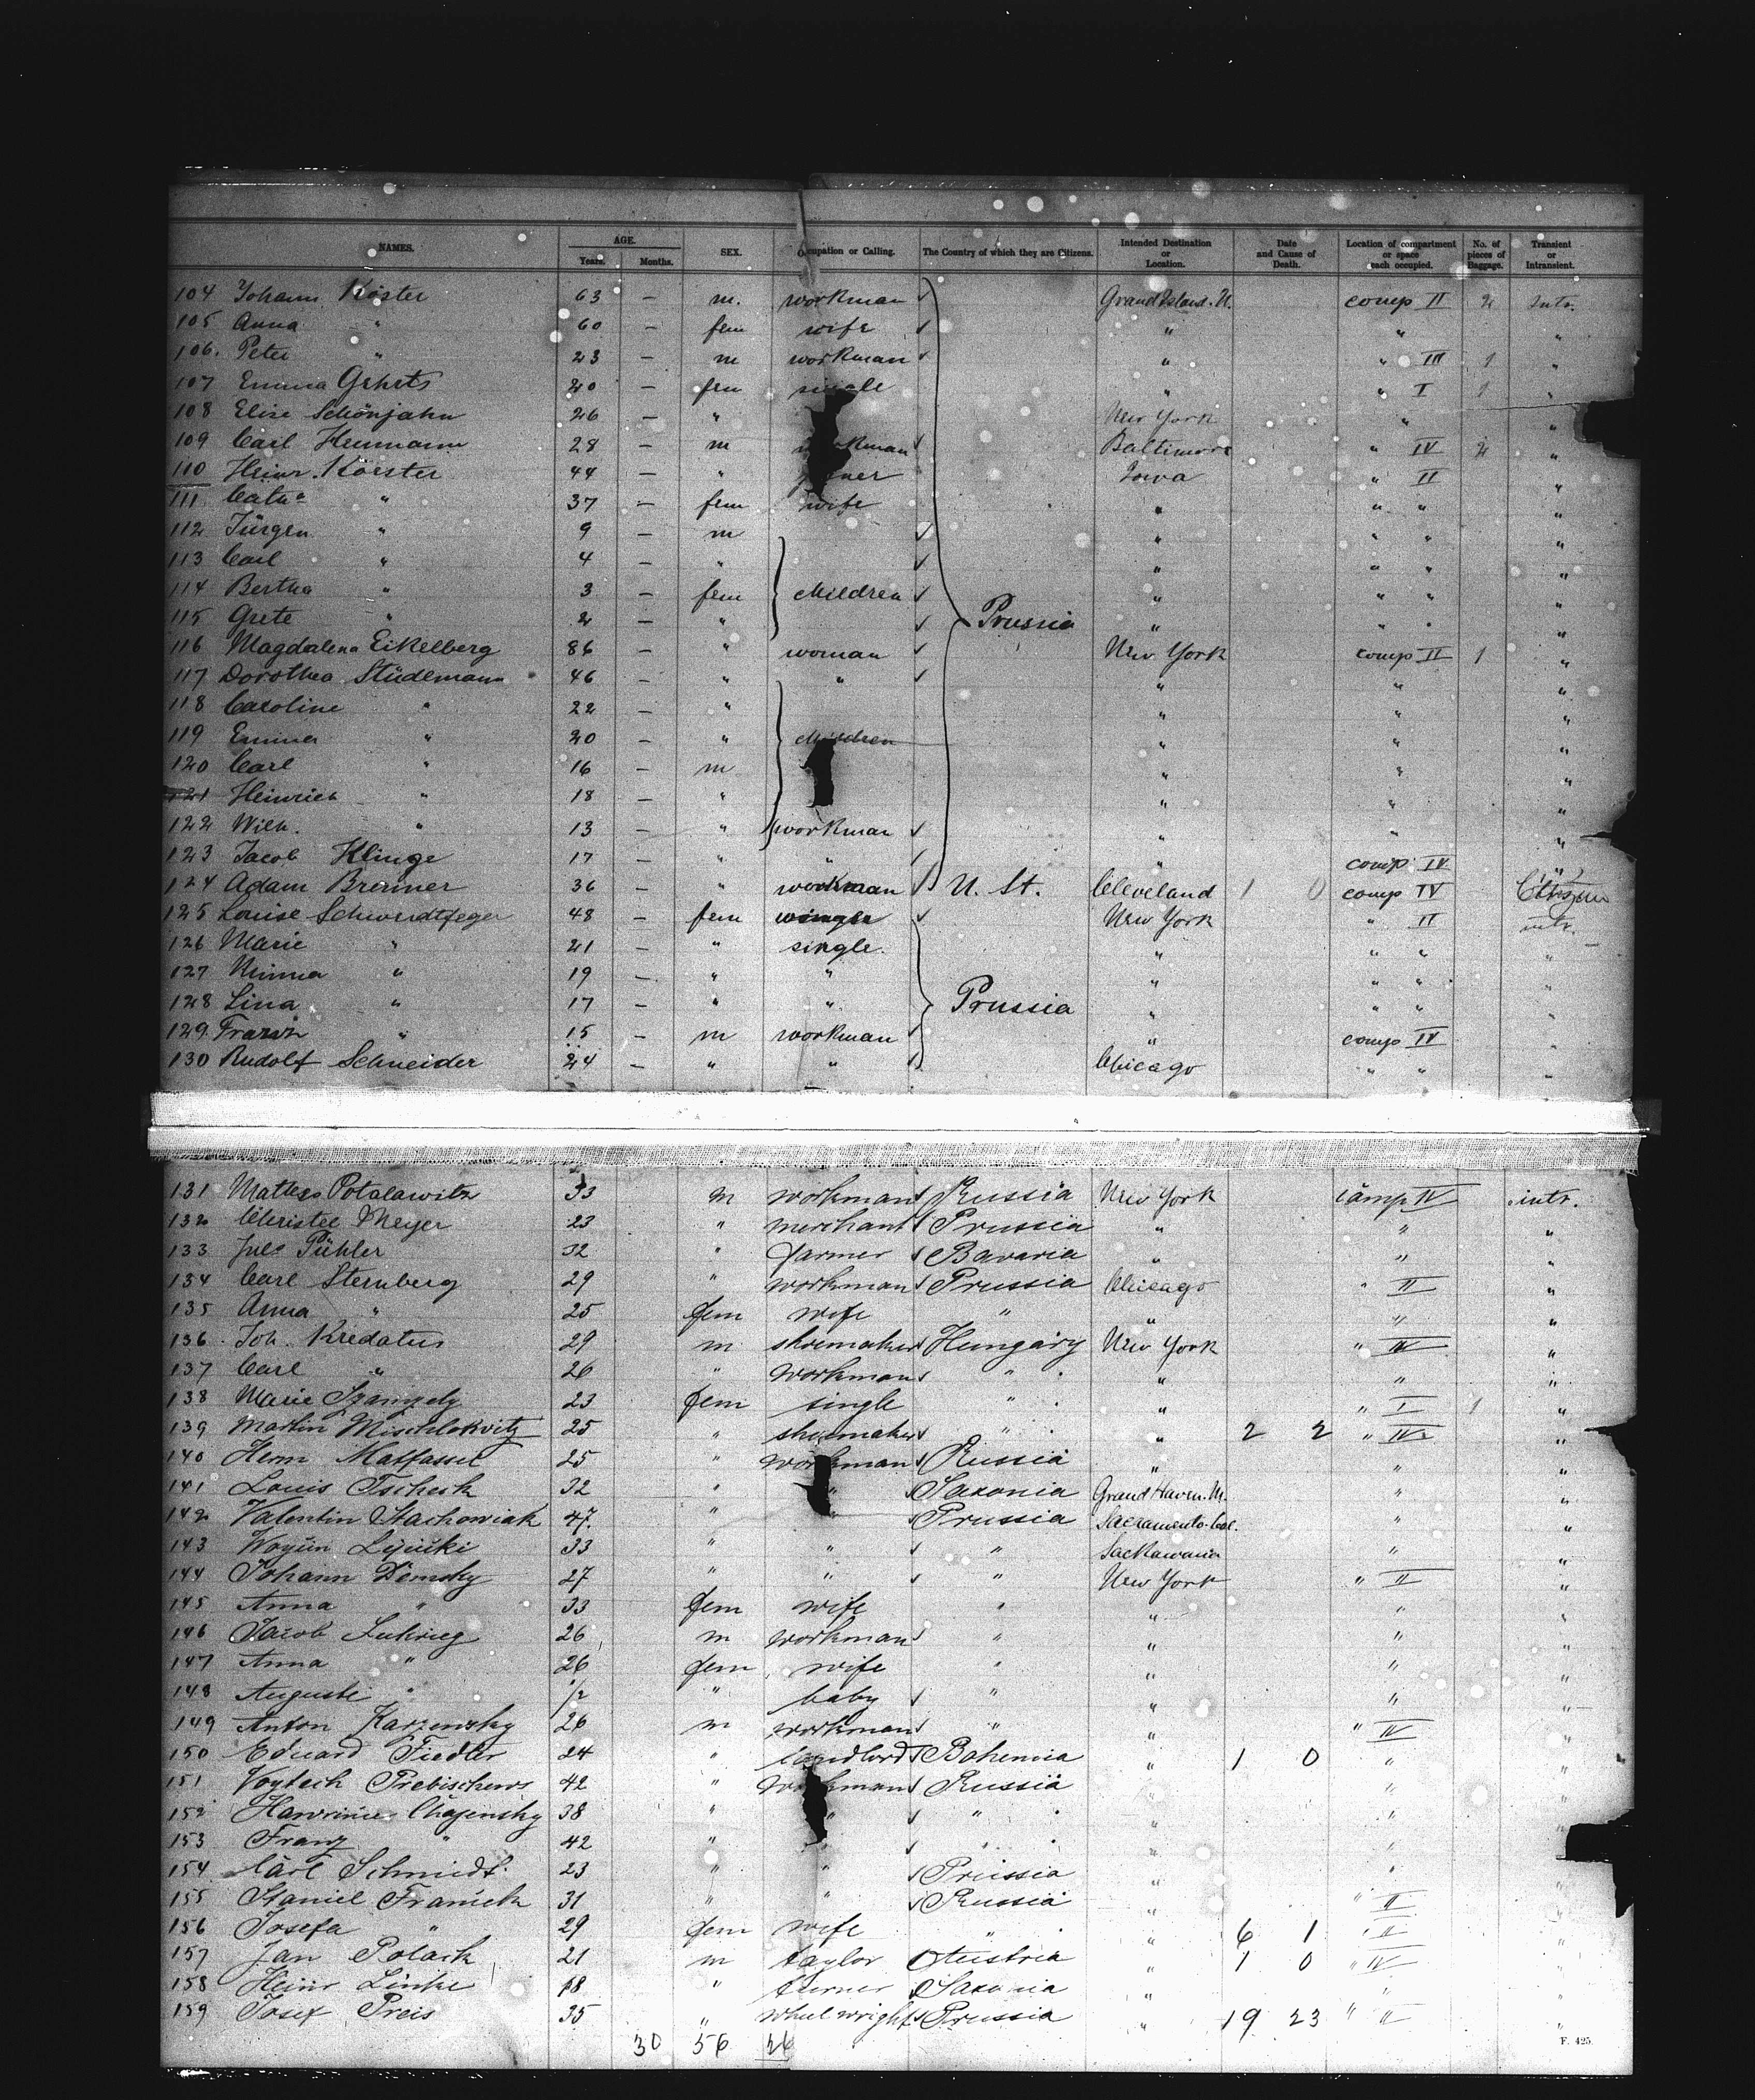 NAMES. AGE. Years. Months. SEX. Occupation or Calling. The Country of which they are Citizens. Intended Destination or Location. Date and Cause of Death. Location of compartment or space each occupied. No. of pieces of Baggage. Transient or Intransient.
104 Johann Köster 63 — m. workman ✓ Grand Island. N. comp II 2 Intr.
105 Anna " 60 — fem wife ✓ " " "
106. Peter " 23 — m workman ✓ " " III 1 "
107 Emma Gehrts 20 — fem single " " I 1 "
108 Elise Schönjahn 26 — " New York " "
109 Carl Heumann 28 — m workman ✓ Baltimore " IV 2 "
110 Heinr. Körster 44 — " Iowa " II "
111 Catha " 37 — fem wife " " " "
112 Jürgen " 9 — m ✓ " " " "
113 Carl " 4 — " ✓ " " " "
114 Bertha " 3 — fem children ✓ " " " "
115 Grete " 2 — " ✓ Prussia " " " "
116 Magdalena Eikelberg 86 — " woman ✓ New York comp II 1 "
117 Dorothea Stüdemann 46 — " " ✓ " " "
118 Caroline " 22 — " " " "
119 Emma " 20 — " children " " "
120 Carl " 16 — m " " "
121 Heinrich " 18 — " " " "
122 Wilh. " 13 — " workman ✓ " " "
123 Jacob Klinge 17 — " " ✓ " comp IV "
124 Adam Brenner 36 — " workman ✓ U. St. Cleveland 1 0 comp IV Citizen
125 Louise Schwerdtfeger 48 — fem ✓ New York " II intr.
126 Marie " 21 — " single. " " " "
127 Minna " 19 — " " " " " "
128 Lina " 17 — " " Prussia " " " "
129. Franz " 15 — m workman ✓ " comp IV "
130 Rudolf Schneider 24 — " " ✓ Chicago " " "
131 Potalawitz 33 m workman ✓ Russia New York comp IV intr.
132 Meyer 23 " merchant ✓ Prussia " " "
133 Juls Pühler 32 " farmer ✓ Bavaria " " "
134 Carl Sternberg 29 " workman ✓ Prussia Chicago " II "
135 Anna " 25 fem wife " " " "
136. Joh. Kredatus 29 m shoemaker ✓ Hungary New York " IV "
137 Carl " 26 " workman ✓ " " "
138 Marie 23 fem single " " " I 1 "
139 Martin 25 " shoemaker ✓ " " 2 2 " IV "
140 Herm 25 " workman ✓ Russia " " "
141 Louis 32 " " ✓ Saxonia Grand Haven. M. " "
142 Valentin Stachowiak 47. " " ✓ Prussia Sacramento. Cal. " "
143 33 " " ✓ " " "
144 Johann Demsky 27 " " ✓ " New York " II "
145 Anna " 33 fem wife " " " "
146 Jacob 26 m workman ✓ " " " "
147 Anna " 26 fem wife " " " "
148 Auguste " 1/2 " baby ✓ " " " "
149 Anton Karzensky 26 m workman ✓ " " " IV "
150 Eduard Fiedler 24 " landlord ✓ Bohemia " 1 0 " "
151 Voytech 42 " workman ✓ Russia " " "
152 38 " " ✓ " " " "
153 Franz " 42 " " ✓ " " " "
154 Carl Schmidt 23 " " ✓ Prussia " " "
155 Franick 31 " " ✓ Russia " " II "
156 Josefa " 29 fem wife " " 6 1 " II "
157 Jan Polack 21 m taylor Austria " 1 0 " IV "
158 Heinr Linke 18 " turner Saxonia " " "
159 Josef Preis 35 " wheelwright ✓ Prussia " 19 23 " II "
30 56
F. 425.